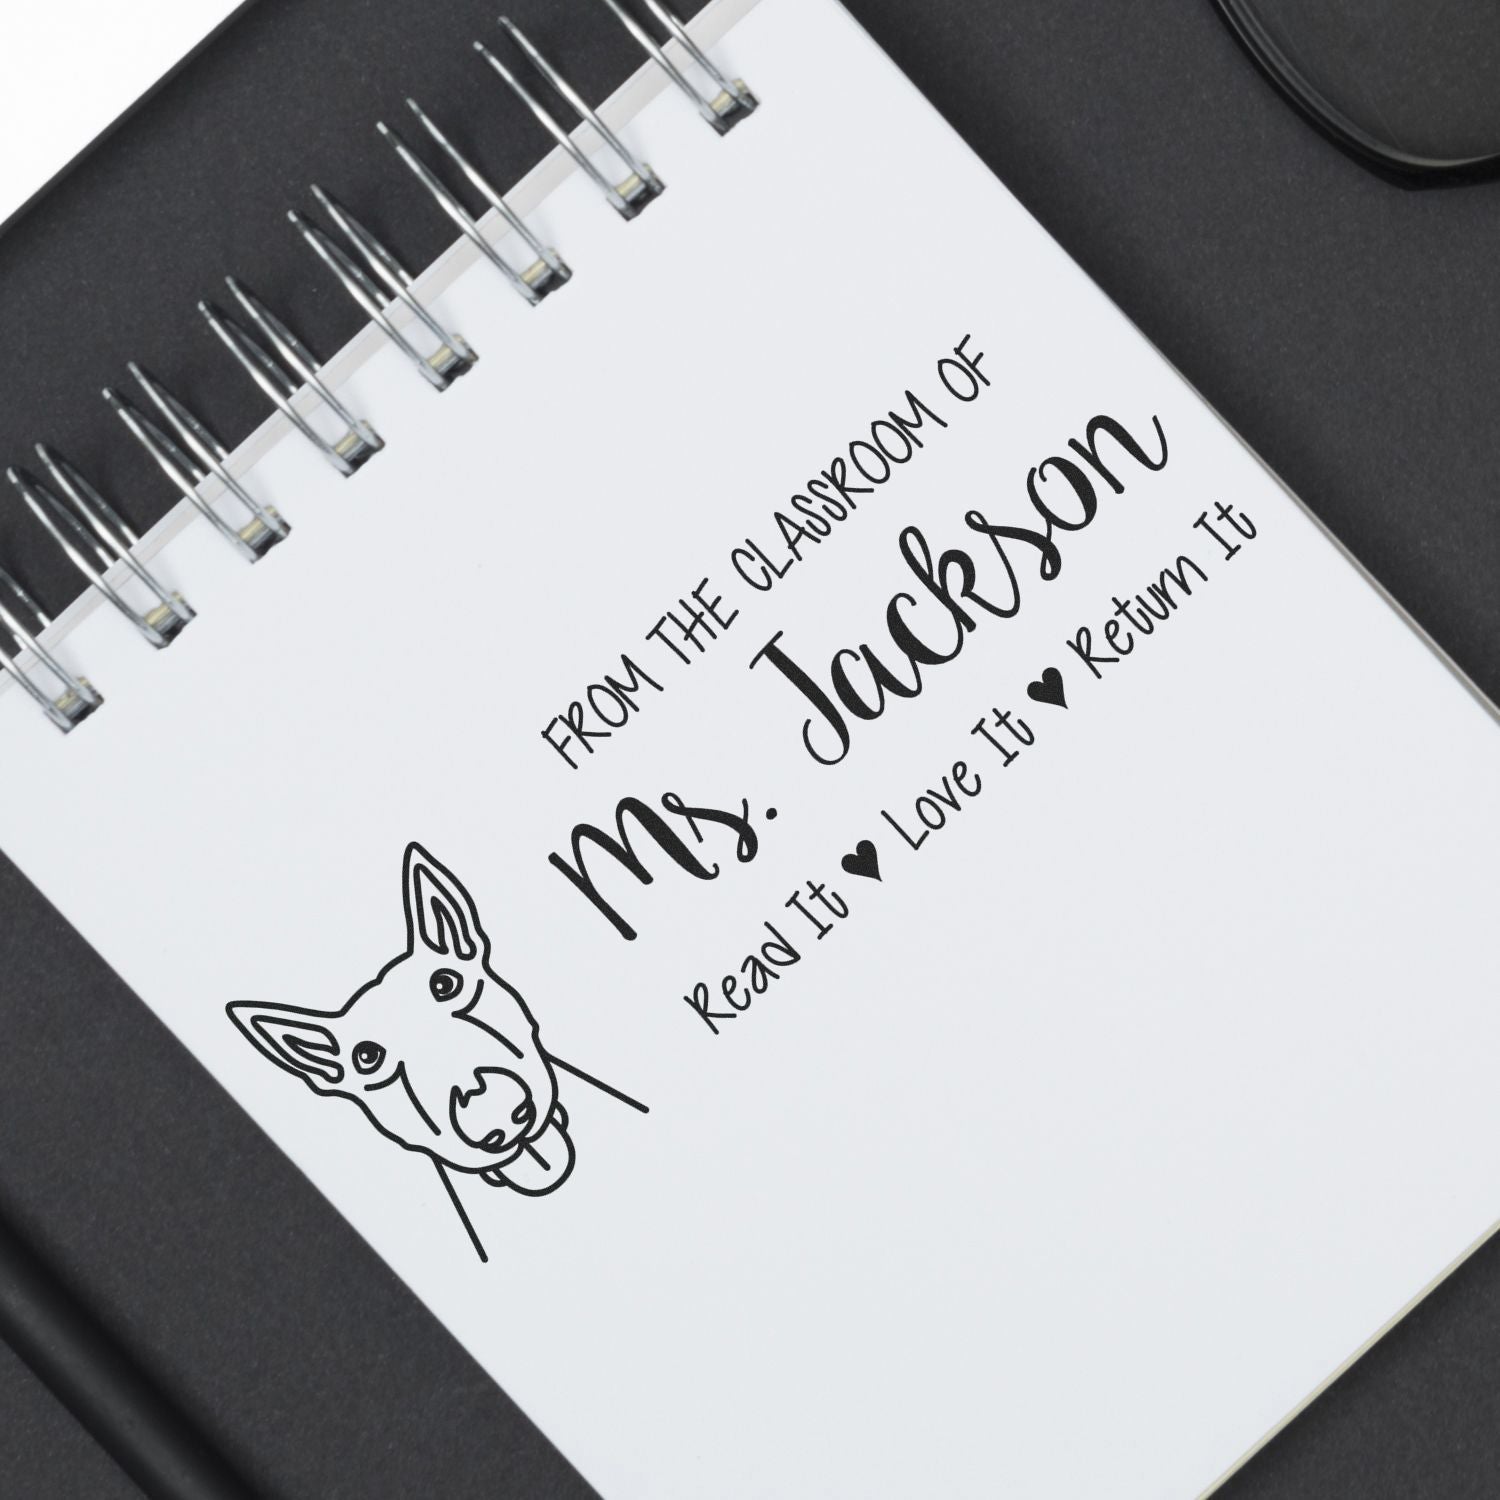 FROM THE CLASSROOM OF
Ms. Jackson
Read It ♥ Love It ♥ Return It